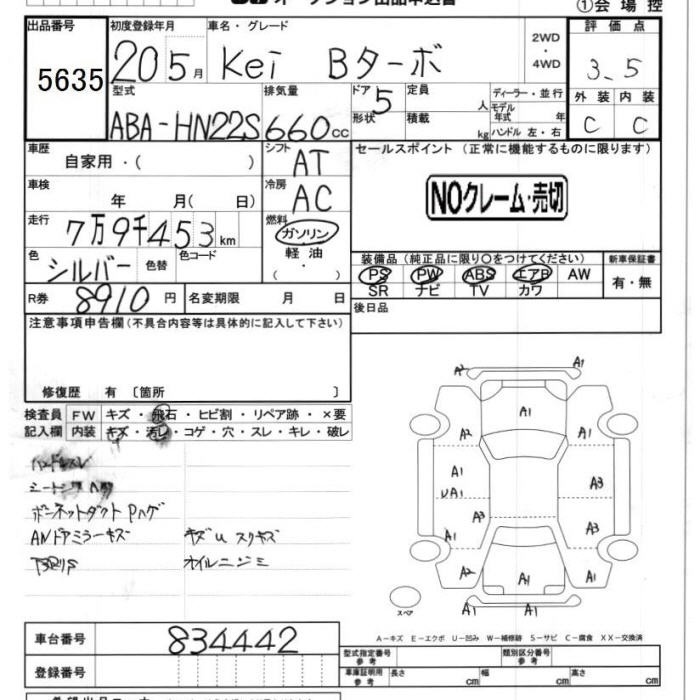 オークション出品申込書
①会場控
出品番号 初度登録年月 車名・グレード 2WD ・ 4WD 評価点
5635 20 5月 Kei Bターボ 3.5
型式 排気量 ドア 定員 人 ディーラー・並行 外装 内装
ABA-HN22S 660cc 5 形状 積載 kg モデル年式 年 ハンドル 左・右 C C
車歴 シフト セールスポイント (正常に機能するものに限ります)
自家用・( ) AT
車検 冷房 NOクレーム・売切
年 月( 日) AC
走行 燃料
7万9千453km ガソリン
色 色替 色コード 軽油 装備品 (純正品に限り○をつけてください) 新車保証書
シルバー ・( ) PS PW ABS エアB AW 有・無
R券 8910円 名変期限 月 日 SR ナビ TV カワ
注意事項申告欄(不具合内容等は具体的に記入して下さい) 後日品
修復歴 有 〔箇所 〕
検査員 FW キズ・飛石・ヒビ割・リペア跡・×要
記入欄 内装 キズ・汚レ・コゲ・穴・スレ・キレ・破レ
ハンドルスレ
ボーネットダクトPハゲ
ANドアミラーキズ キズU スリキズ
オイルニジミ
A2 A1
A1
A2 A1
A1 A3
UA1
A3
A1 A1
A2 A1 A1
A1 A1
スペア
A-キズ E-エクボ U-凹み W-補修跡 S-サビ C-腐食 XX-交換済
車台番号 834442
型式指定番号 参考 類別区分番号 参考
登録番号 車庫証明用 参考 長さ cm 幅 cm 高さ cm